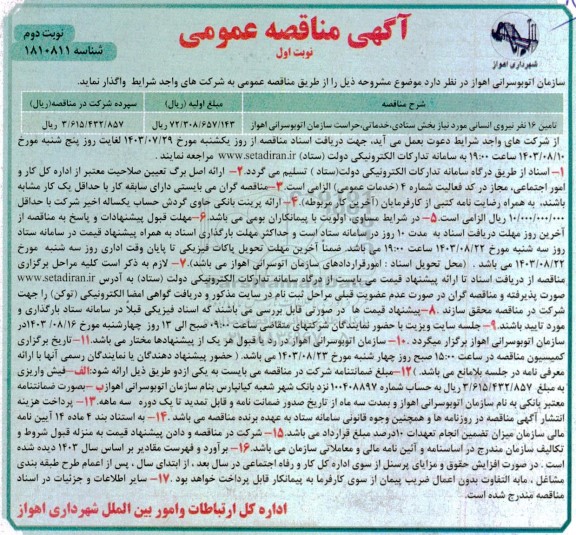 آگهی مناقصه عمومی
نوبت اول
نوبت دوم
شناسه ۱۸۱۰۸۱۱
شهرداری اهواز
سازمان اتوبوسرانی اهواز در نظر دارد موضوع مشروحه ذیل را از طریق مناقصه عمومی به شرکت های واجد شرایط واگذار نماید.
شرح مناقصه
مبلغ اولیه (ریال)
سپرده شرکت در مناقصه(ریال)
تامین ۱۶ نفر نیروی انسانی مورد نیاز بخش ستادی،خدماتی،حراست سازمان اتوبوسرانی اهواز
۷۲/۳۰۸/۶۵۷/۱۴۳ ریال
۳/۶۱۵/۴۳۲/۸۵۷ ریال
از شرکت های واجد شرایط دعوت بعمل می آید، جهت دریافت اسناد مناقصه از روز یکشنبه مورخ ۱۴۰۳/۰۷/۲۹ لغایت روز پنج شنبه مورخ
۱۴۰۳/۰۸/۱۰ ساعت ۱۹:۰۰ به سامانه تدارکات الکترونیکی دولت (ستاد) www.setadiran.ir مراجعه نمایند .
۱- اسناد از طریق درگاه سامانه تدارکات الکترونیکی دولت(ستاد) تسلیم می گردد ۲- ارائه اصل برگ تعیین صلاحیت معتبر از اداره کل کار و
امور اجتماعی، مجاز در کد فعالیت شماره ۴ (خدمات عمومی) الزامی است ۳-مناقصه گران می بایستی دارای سابقه کار با حداقل یک کار مشابه
باشند، به همراه رضایت نامه کتبی از کارفرمایان (آخرین کار مربوطه). ۴- ارائه پرینت بانکی حاوی گردش حساب یکساله اخیر شرکت با حداقل
۱۰/۰۰۰/۰۰۰/۰۰۰ ریال الزامی است.۵- در شرایط مساوی، اولویت با پیمانکاران بومی می باشد.۶-مهلت قبول پیشنهادات و پاسخ به مناقصه از
آخرین روز مهلت دریافت اسناد به مدت ۱۰ روز در سامانه ستاد است و حداکثر مهلت بارگذاری اسناد به همراه پیشنهاد قیمت در سامانه ستاد
روز سه شنبه مورخ ۱۴۰۳/۰۸/۲۲ ساعت ۱۹:۰۰ می باشد. ضمناً آخرین مهلت تحویل پاکات فیزیکی تا پایان وقت اداری روز سه شنبه مورخ
۱۴۰۳/۰۸/۲۲ می باشد . (محل تحویل اسناد : امورقراردادهای سازمان اتوبوسرانی اهواز می باشد).۷- لازم به ذکر است کلیه مراحل برگزاری
مناقصه از دریافت اسناد تا ارائه پیشنهاد قیمت می بایست از درگاه سامانه تدارکات الکترونیکی دولت (ستاد) به آدرس www.setadiran.ir
صورت پذیرفته و مناقصه گران در صورت عدم عضویت قبلی مراحل ثبت نام در سایت مذکور و دریافت گواهی امضا الکترونیکی (توکن) را جهت
شرکت در مناقصه محقق سازند .۸-پیشنهاد قیمت ها در صورتی قابل بررسی می باشند که اسناد فیزیکی قبلا در سامانه ستاد بارگذاری و
مورد تایید باشند.۹- جلسه سایت ویزیت با حضور نمایندگان شرکتهای متقاضی ساعت ۰۹:۰۰ صبح الی ۱۳ روز چهارشنبه مورخ ۱۴۰۳/۰۸/۱۶در
سازمان اتوبوسرانی اهواز برگزار میگردد .۱۰- سازمان اتوبوسرانی اهواز در رد یا قبول هر یک از پیشنهادها مختار می باشد.۱۱-تاریخ برگزاری
کمیسیون مناقصه در ساعت ۱۵:۰۰ صبح روز چهار شنبه مورخ ۱۴۰۳/۰۸/۲۳ می باشد. ( حضور پیشنهاد دهندگان یا نمایندگان رسمی آنها با ارائه
معرفی نامه در جلسه بلامانع می باشد. )۱۲-مبلغ ضمانتنامه شرکت در مناقصه می بایست به یکی ازدو طریق ذیل ارائه شود:الف-فیش واریزی
به مبلغ ۳/۶۱۵/۴۳۲/۸۵۷ ریال به حساب شماره ۱۰۰۴۰۸۸۹۷ نزد بانک شهر شعبه کیانپارس بنام سازمان اتوبوسرانی اهوازب -بصورت ضمانتنامه
معتبر بانکی به نام سازمان اتوبوسرانی اهواز و بمدت سه ماه از تاریخ صدور ضمانت نامه و قابل تمدید تا یک دوره سه ماهه.۱۳- پرداخت هزینه
انتشار آگهی مناقصه در روزنامه ها و همچنین وجوه قانونی سامانه ستاد به عهده برنده مناقصه می باشد .۱۴- به استناد بند ۴ ماده ۱۴ آیین نامه
مالی سازمان میزان تضمین انجام تعهدات ۱۰درصد مبلغ قرارداد می باشد.۱۵- شرکت در مناقصه و دادن پیشنهاد قیمت به منزله قبول شروط و
تکالیف سازمان مندرج در اساسنامه و آئین نامه مالی و معاملاتی سازمان می باشد.۱۶- برآورد و فهرست مقادیر بر اساس سال ۱۴۰۳ دیده شده
است . در صورت افزایش حقوق و مزایای پرسنل از سوی اداره کل کار و رفاه اجتماعی در سال بعد ، از ابتدای سال ، پس از اعمام طرح طبقه بندی
مشاغل ، مابه التفاوت بدون اعمال ضریب پیمان از سوی کارفرما به پیمانکار قابل پرداخت خواهد بود .۱۷- سایر اطلاعات و جزئیات در اسناد
مناقصه مندرج شده است.
اداره کل ارتباطات وامور بین الملل شهرداری اهواز